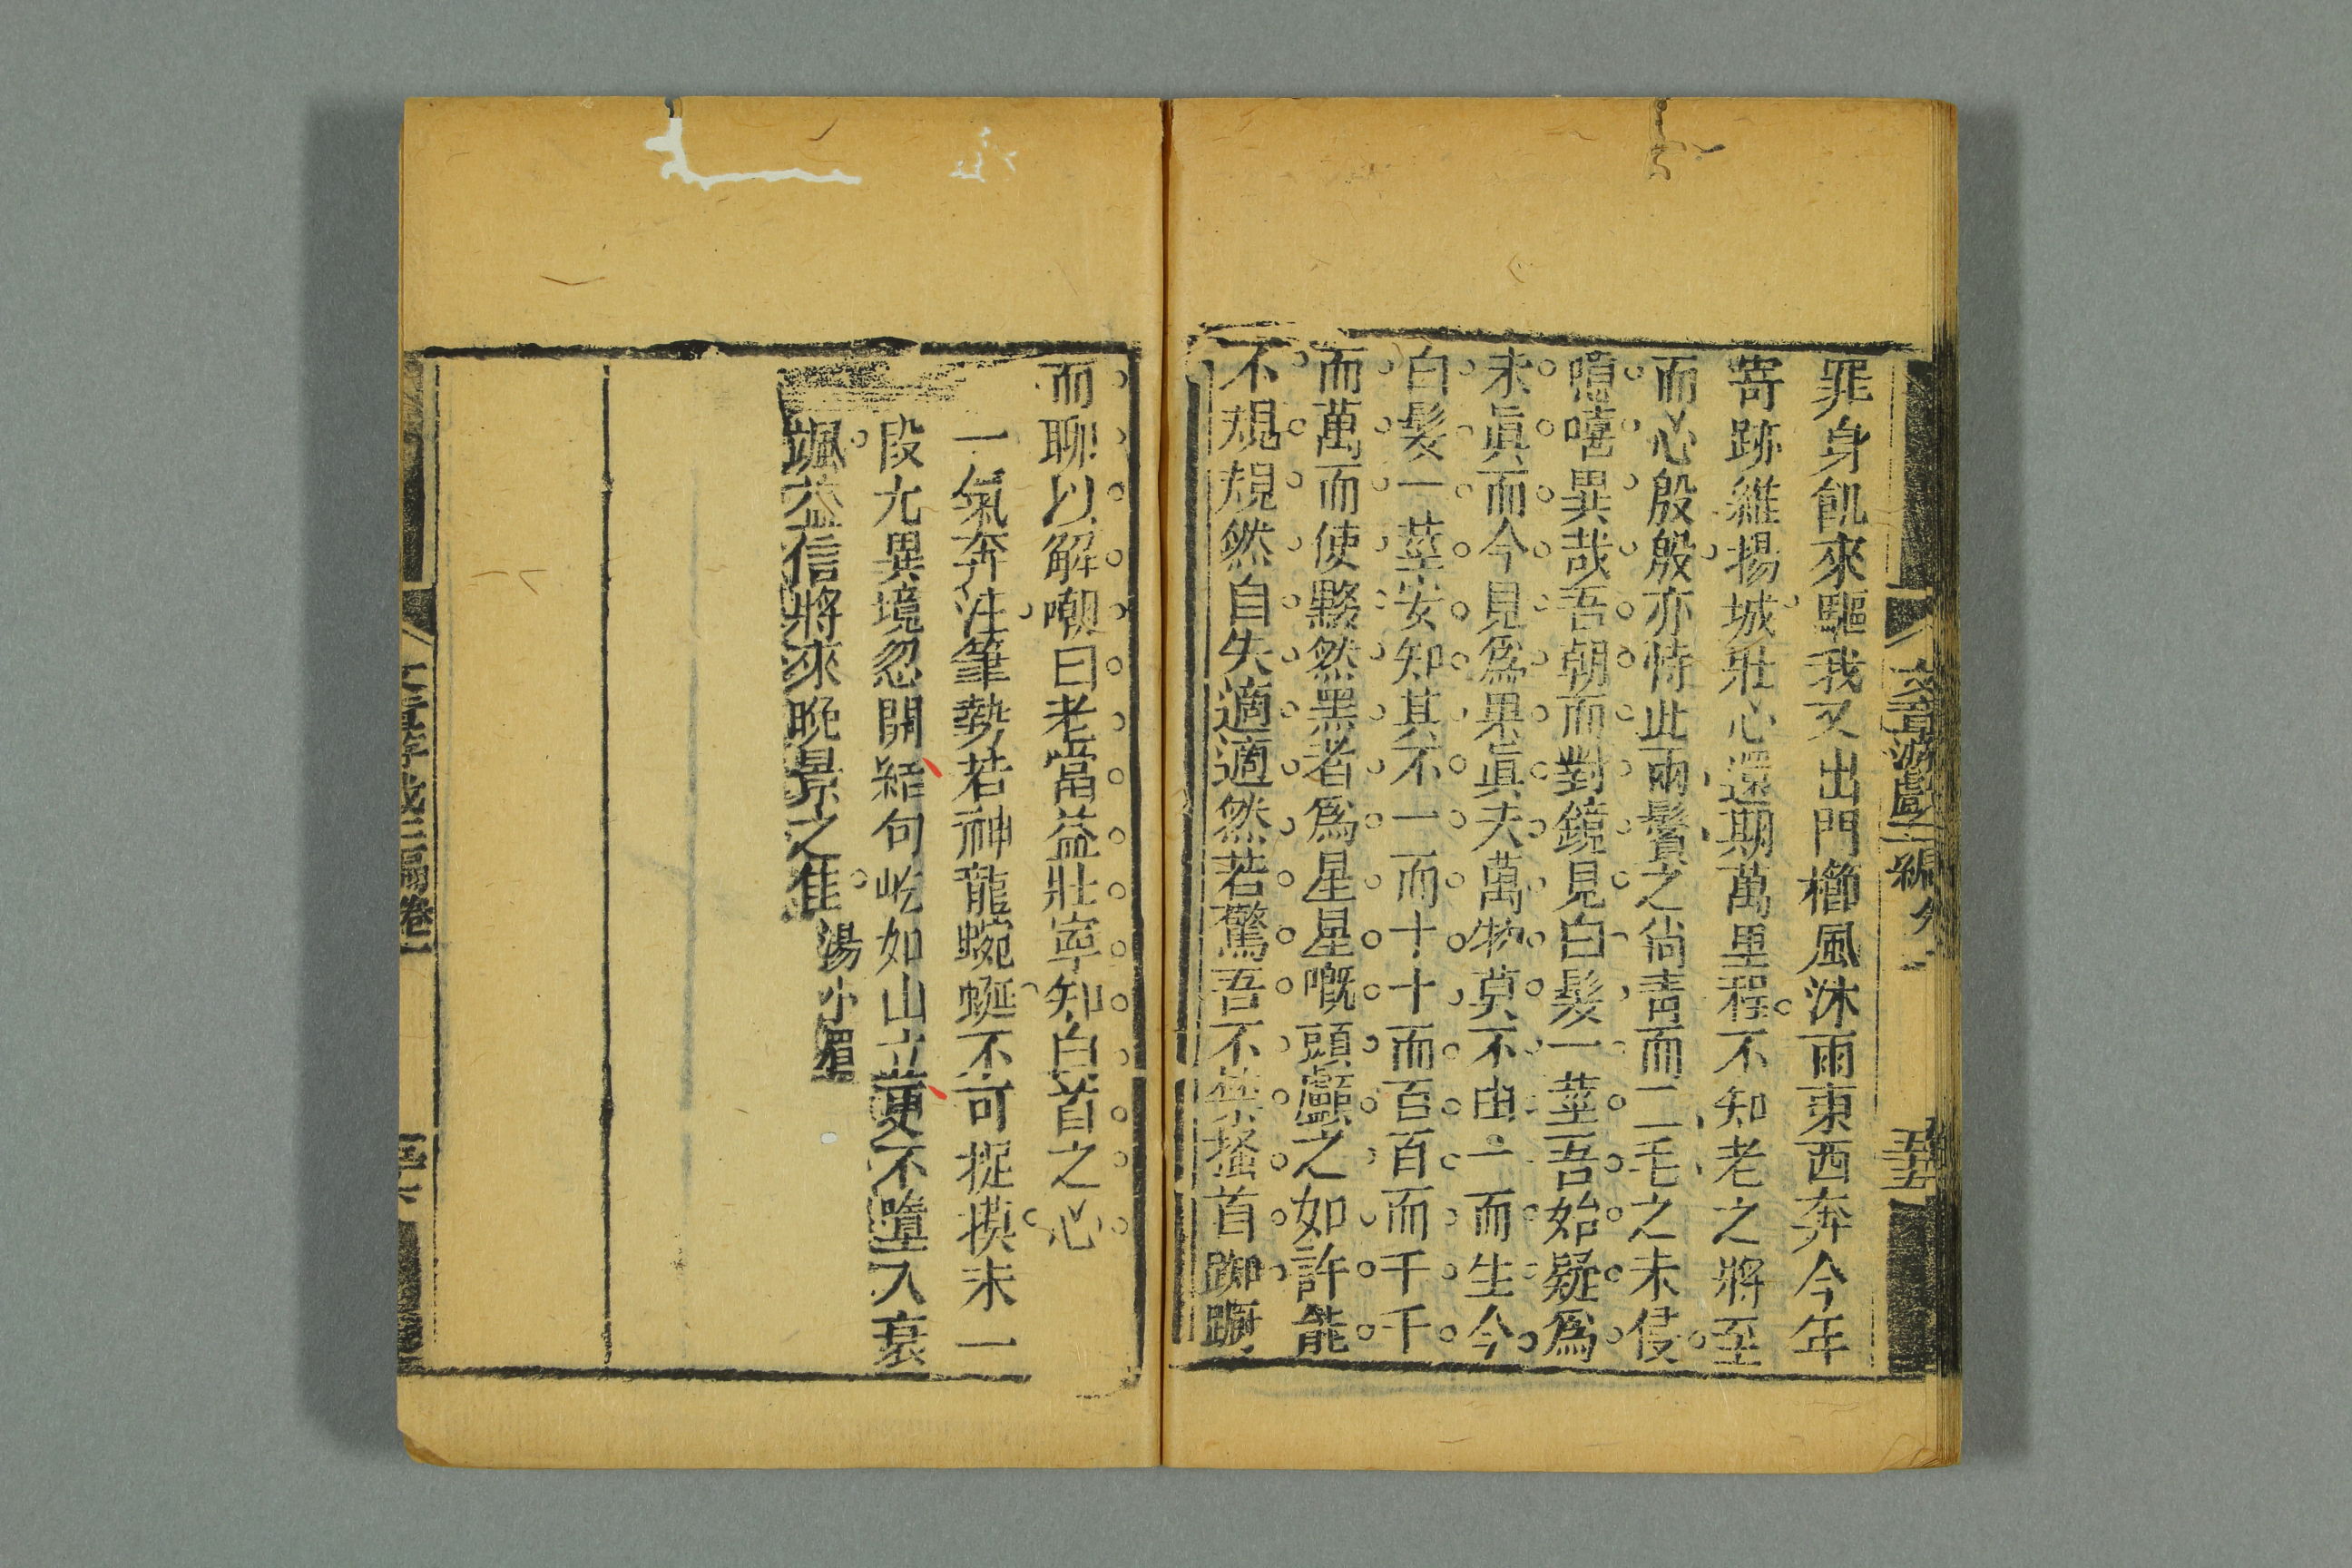 罪身飢來驅我又出門櫛風沐雨東西奔今年
寄跡維揚城壯心還期萬里程不知老之將至
而心殷殷亦恃此兩鬢之尙靑而二毛之未侵
噫嘻異哉吾朝而對鏡見白髮一莖吾始疑爲
未眞而今見爲果眞夫萬物莫不由一而生今
白髮一莖安知其不一而十十而百百而千千
而萬而使黟然黑者爲星星嘅頭顱之如許能
不規規然自失適適然若驚吾不禁搔首踟躕
而聊以解嘲曰老當益壯寧知白首之心
一氣奔注筆勢若神龍蜿蜒不可捉摸末一
段尤異境忽開結句屹如山立更不墮入衰
颯益信將來晚景之佳 湯小眉